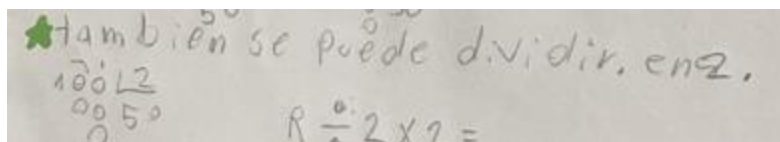 también se puede dividir. en 2.
100 2
00 50
0
R ÷ 2 x 2 =